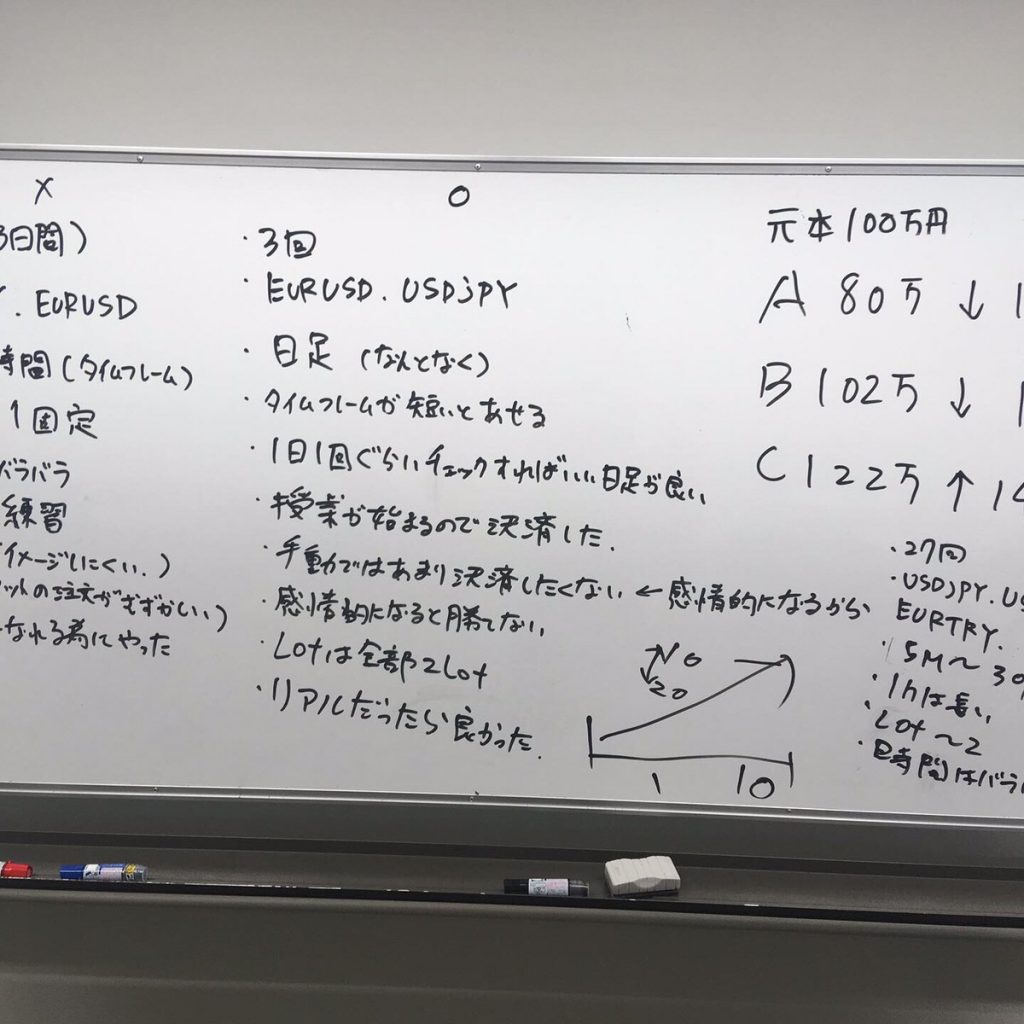 ×
3日間)
. EURUSD
時間(タイムフレーム)
1固定
バラバラ
練習
イメージしにくい.)
ットの注文がむずかしい)
なれる為にやった
○
・3回
・EURUSD. USDJPY
・日足 (なんとなく)
・タイムフレームが短いとあせる
・1日1回ぐらいチェックすればいい日足が良い
・授業が始まるので決済した.
・手動ではあまり決済したくない ← 感情的になるから
・感情的になると勝てない
・Lotは全部2Lot
・リアルだったら良かった.
20
1 10
元本100万円
A 80万 ↓ 1
B 102万 ↓ 1
C 122万 ↑ 14
・27回
・USDJPY. US
EURTRY.
・5M~30
・1hは長い
・Lot~2
・時間はバラ